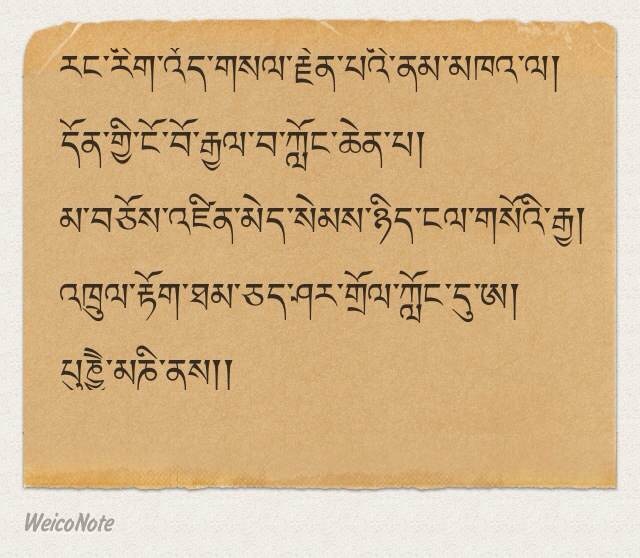 རང་རིག་འོད་གསལ་རྫེན་པའི་ནམ་མཁའ་ལ།
དོན་གྱི་ངོ་བོ་རྒྱལ་བ་ཀློང་ཆེན་པ།
མ་བཅོས་འཛིན་མེད་སེམས་ཉིད་ངལ་གསོའི་རྒྱ།
འཁྲུལ་རྟོག་ཐམ་ཅད་ཤར་གྲོལ་ཀློང་དུ་ཨ།
པུ་ཎྱེ་མཎི་ནས།།
WeicoNote